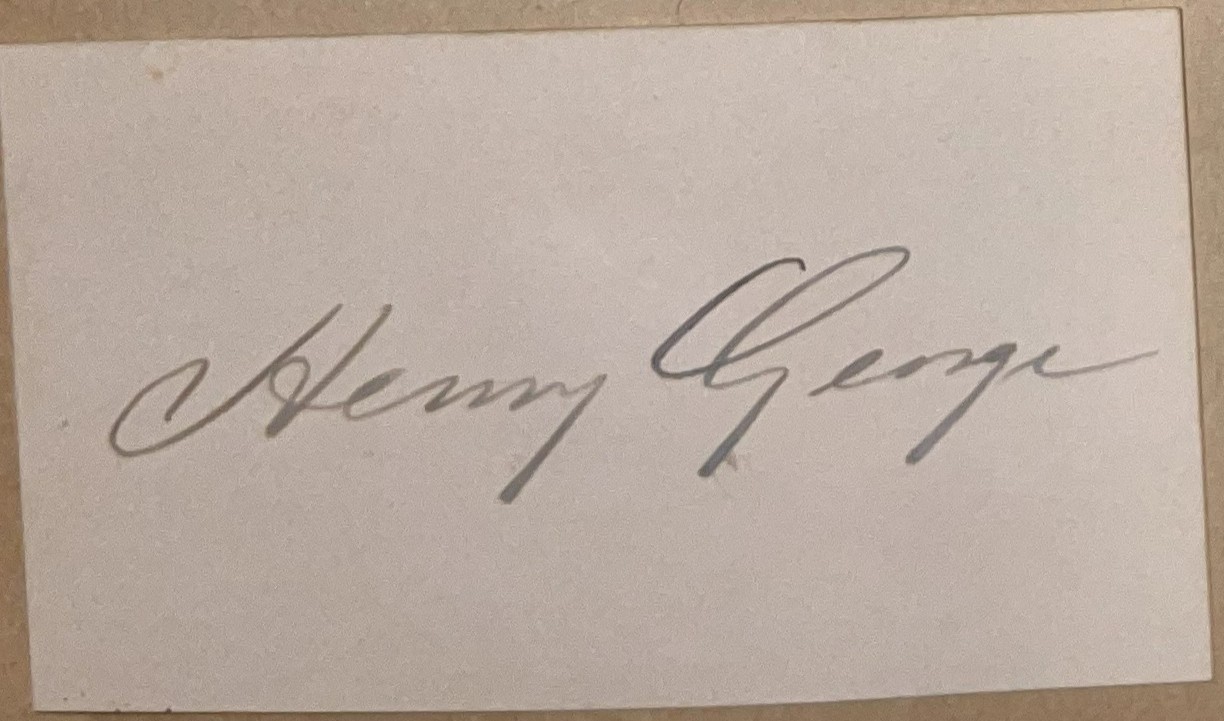 Henry George